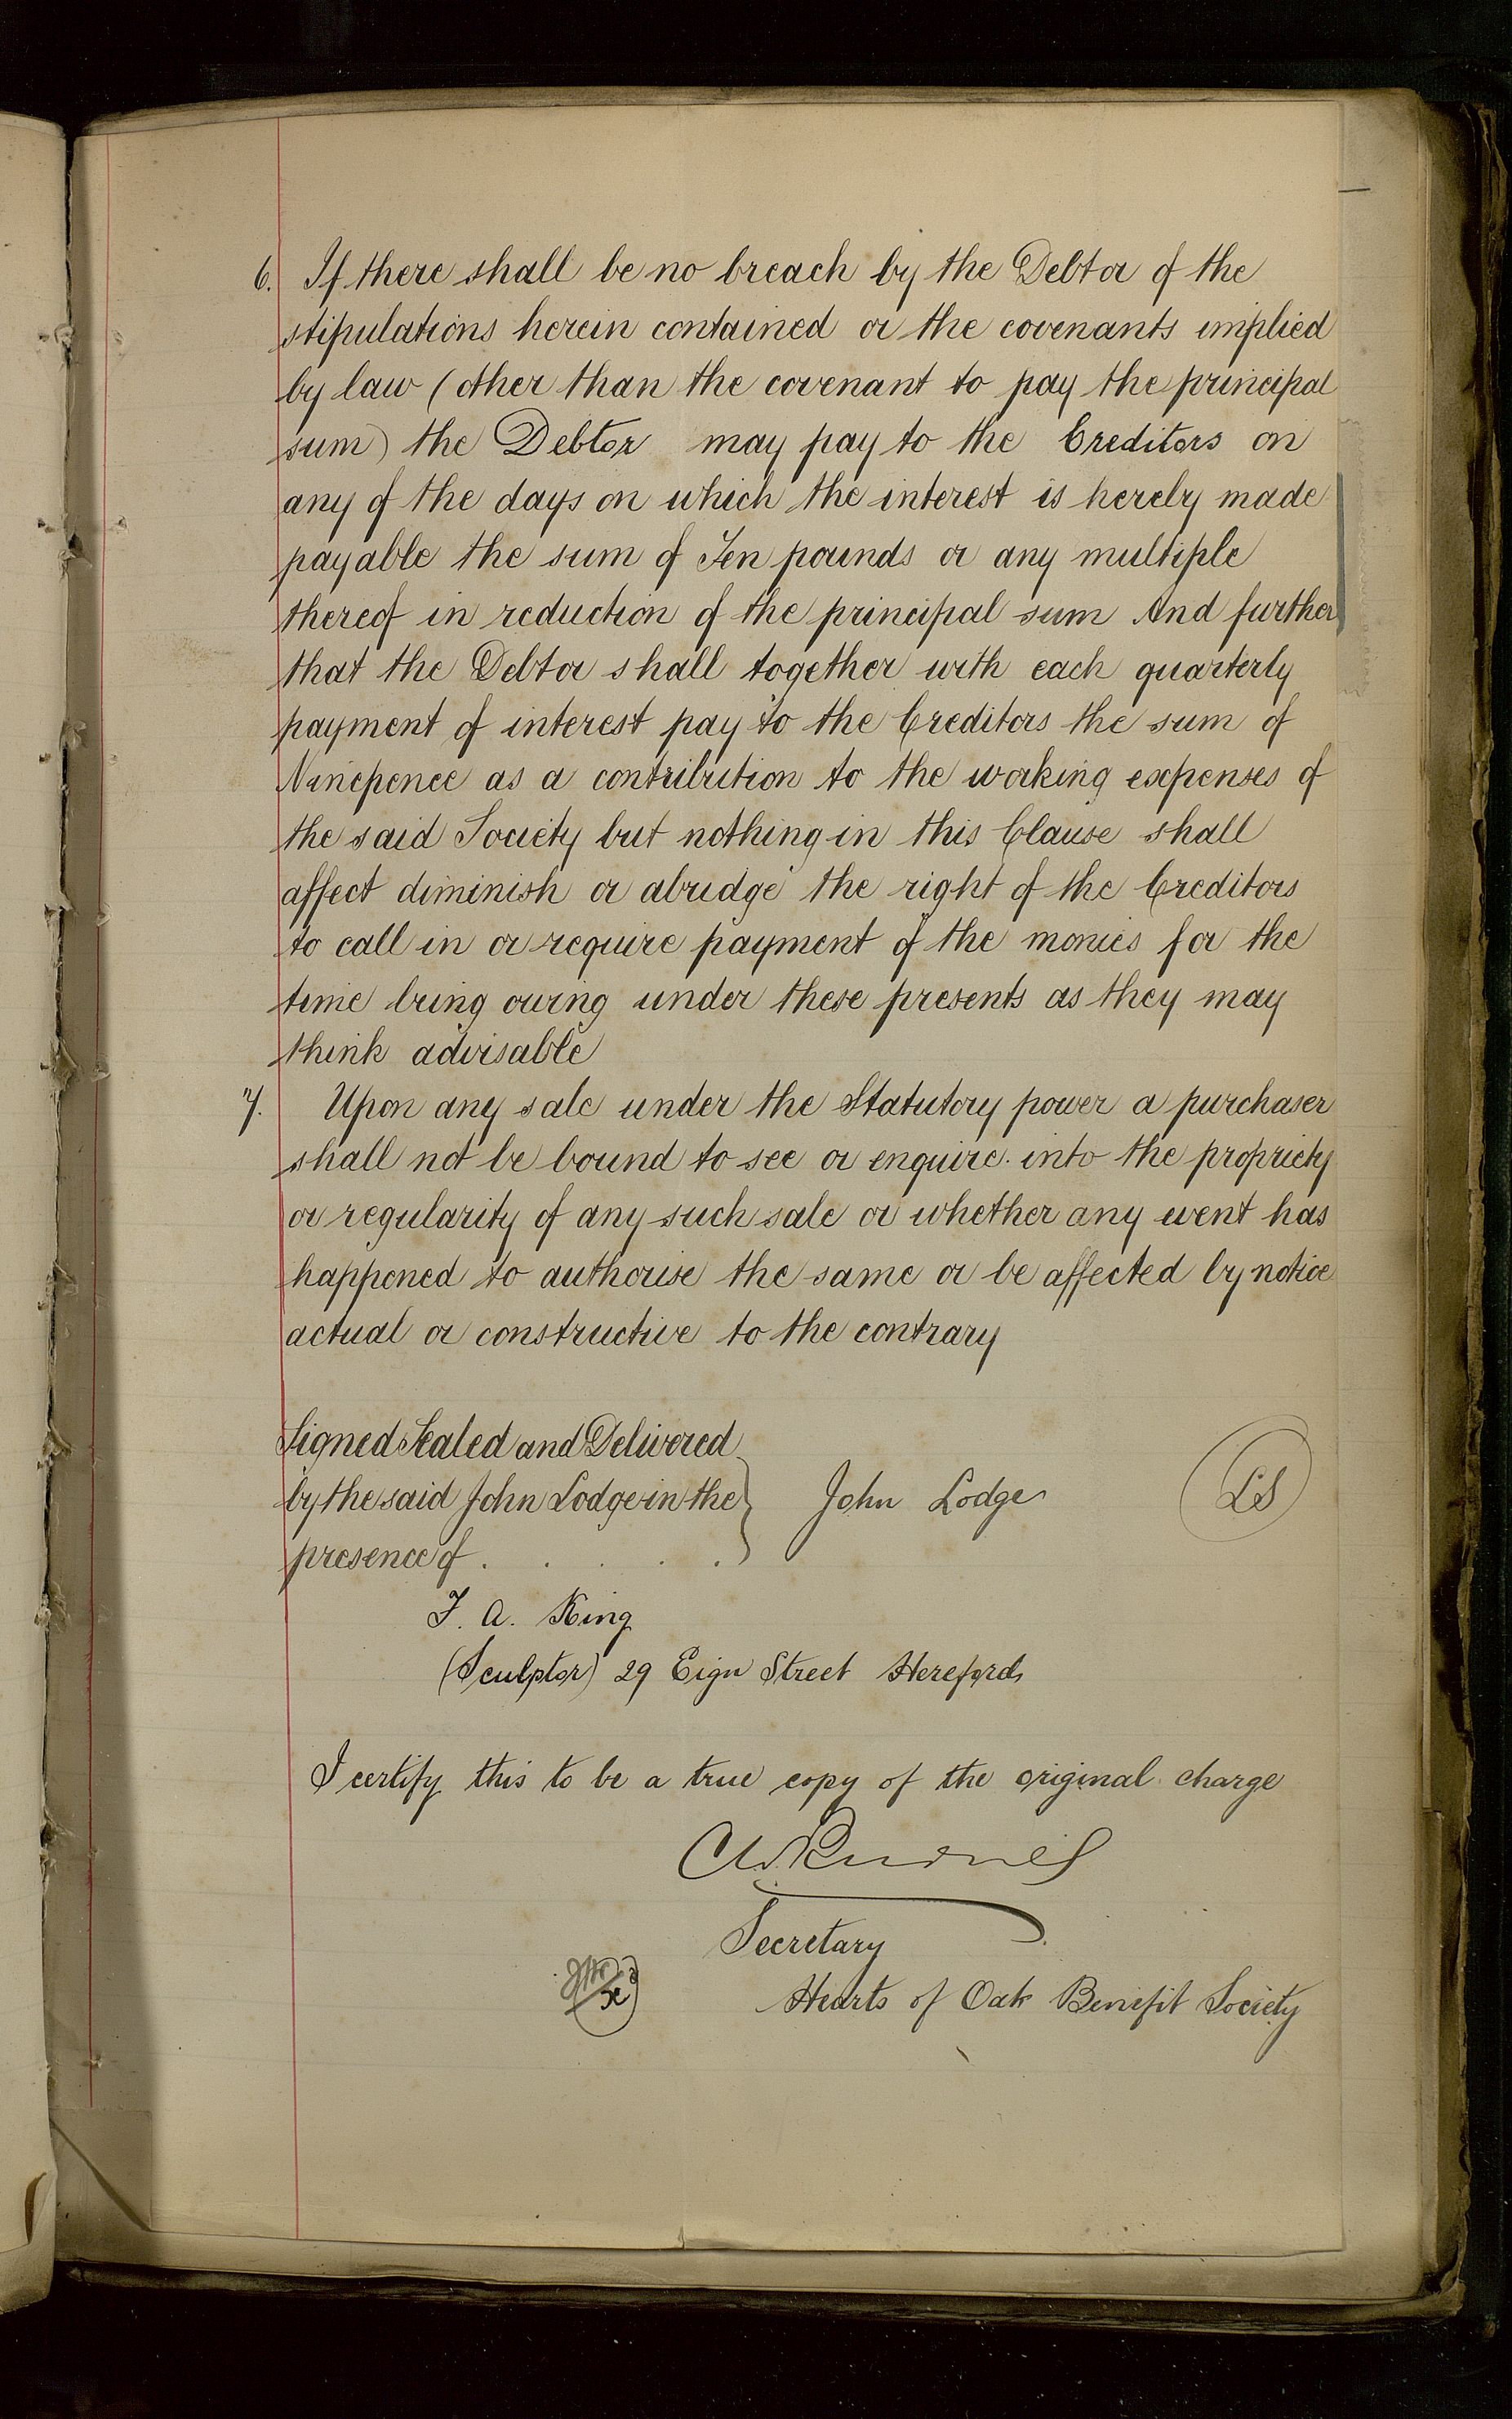 6. If there shall be no breach by the Debtor of the
stipulations herein contained or the covenants implied
by law (other than the covenant to pay the principal
sum) the Debtor may pay to the Creditors on
any of the days on which the interest is hereby made
payable the sum of Ten pounds or any multiple
thereof in reduction of the principal sum And further
that the Debtor shall together with each quarterly
payment of interest pay to the Creditors the sum of
Ninepence as a contribution to the working expenses of
the said Society but nothing in this Clause shall
affect diminish or abridge the right of the Creditors
to call in or require payment of the monies for the
time being owing under these presents as they may
think advisable
7. Upon any sale under the Statutory power a purchaser
shall not be bound to see or enquire into the propriety
or regularity of any such sale or whether any event has
happened to authorise the same or be affected by notice
actual or constructive to the contrary
Signed Sealed and Delivered
by the said John Lodge in the
presence of . . . . .
John Lodge
LS
F. A. King
(Sculptor) 29 Eign Street Hereford
I certify this to be a true copy of the original charge
Secretary
Hearts of Oak Benefit Society